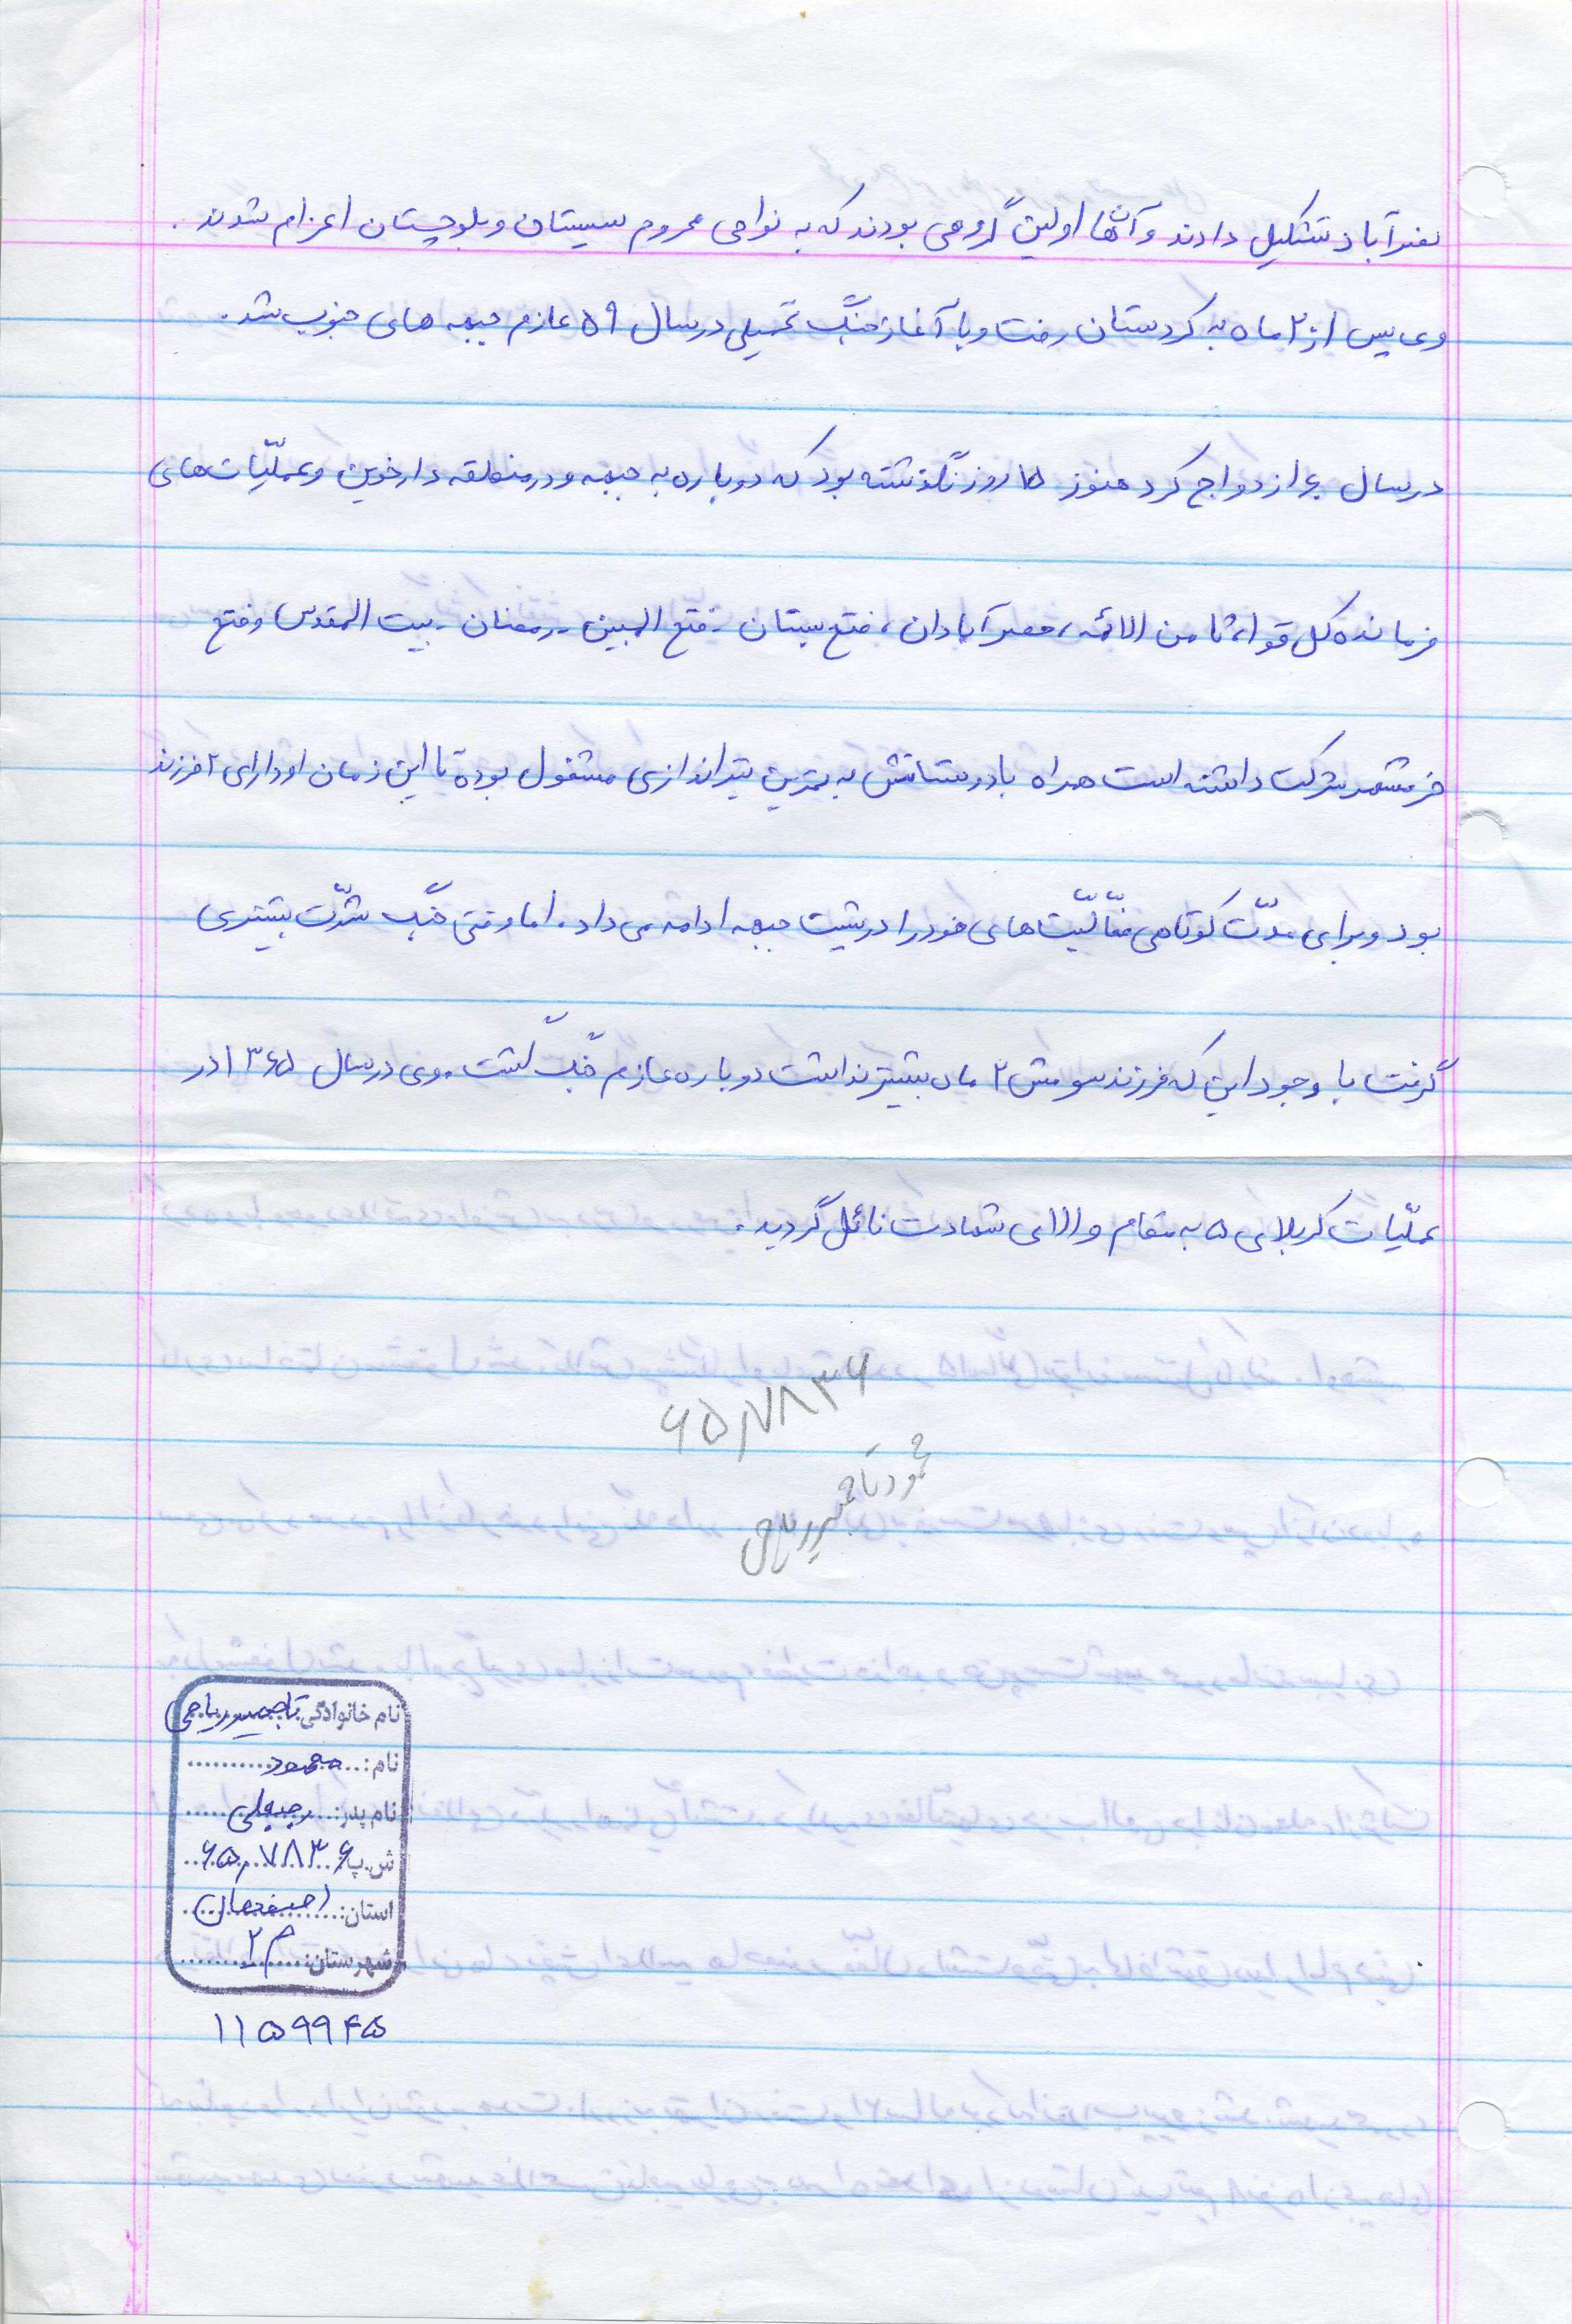 نصرآباد تشکیل دادند و آنها اولین گروهی بودند که به نواحی محروم سیستان و بلوچستان اعزام شدند .
وی پس از ۲ ماه به کردستان رفت و با آغاز جنگ تحمیلی در سال ۵۹ عازم جبهه های جنوب شد .
در سال ۶۰ ازدواج کرد هنوز ۱۵ روز نگذشته بود که دوباره به جبهه و در منطقه دارخوین و عملّیات های
فرمانده کل قوا ، ثامن الائمه ، حصر آبادان ، فتح بستان - فتح المبین - رمضان - بیت المقدس و فتح
خرمشهر شرکت داشته است همراه با دوستانش به تمرین تیراندازی مشغول بوده تا این زمان او دارای ۲ فرزند
بود و برای مدّت کوتاهی فعّالیّت های خود را در پشت جبهه ادامه می داد . اما وقتی جنگ شدّت بیشتری
گرفت با وجود این که فرزند سومش ۲ ماه بیشتر نداشت دوباره عازم جنگ گشت . وی در سال ۱۳۶۵ در
عملّیات کربلای ۵ به مقام والای شهادت نائل گردید .
۶۵۰۷۸۳۶
محمود تاجمیر ریاحی
نام خانوادگی تاجمیر ریاحی
نام: محمود
نام پدر: رجبعلی
ش.پ ۶۵۰۷۸۳۶
استان: اصفهان
شهرستان: م۲
۱۱۵۹۹۴۵